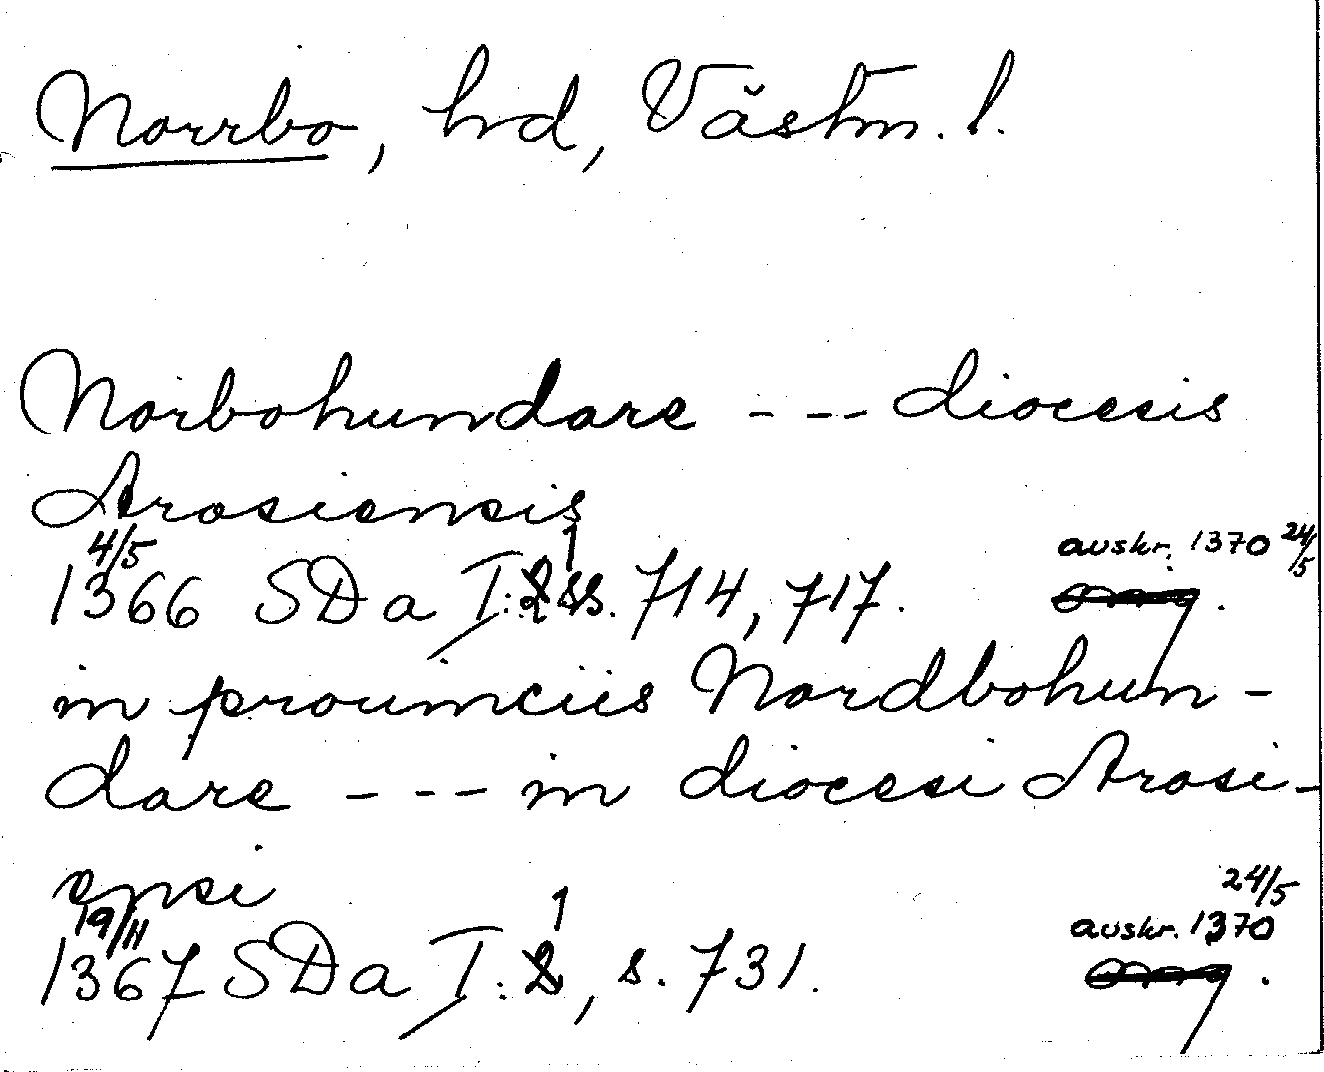 Norrbo, hd, Västm. l.
Norbohundare - - - diocesis
Arosiensis
4/5 avskr. 1370 24/5
1366 SDa I:1 ss. 714, 717.
in prouinciis Nordbohun-
dare - - - in diocesi Arosi-
ensi
19/11 24/5
avskr. 1370
1367 SDa I:1, s. 731.